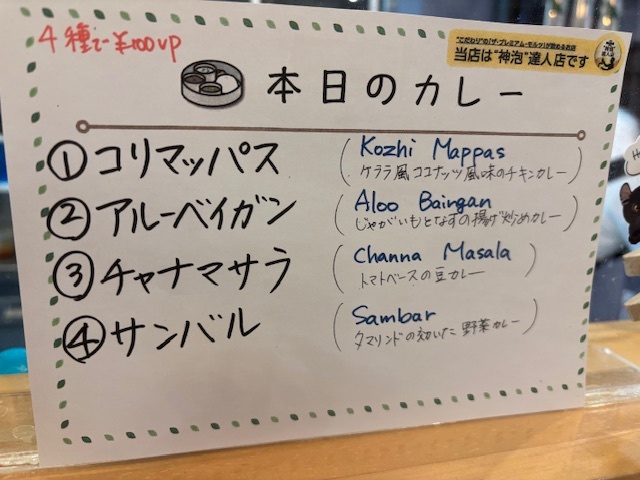 4種で¥100up
"こだわり"の「ザ・プレミアム・モルツ」が飲めるお店
当店は"神泡"達人店です
本日のカレー
① コリマッパス (Kozhi Mappas
ケララ風ココナッツ風味のチキンカレー)
② アルーベイガン (Aloo Baingan
じゃがいもとなすの揚げ炒めカレー)
③ チャナマサラ (Channa Masala
トマトベースの豆カレー)
④ サンバル (Sambar
タマリンドの効いた野菜カレー)